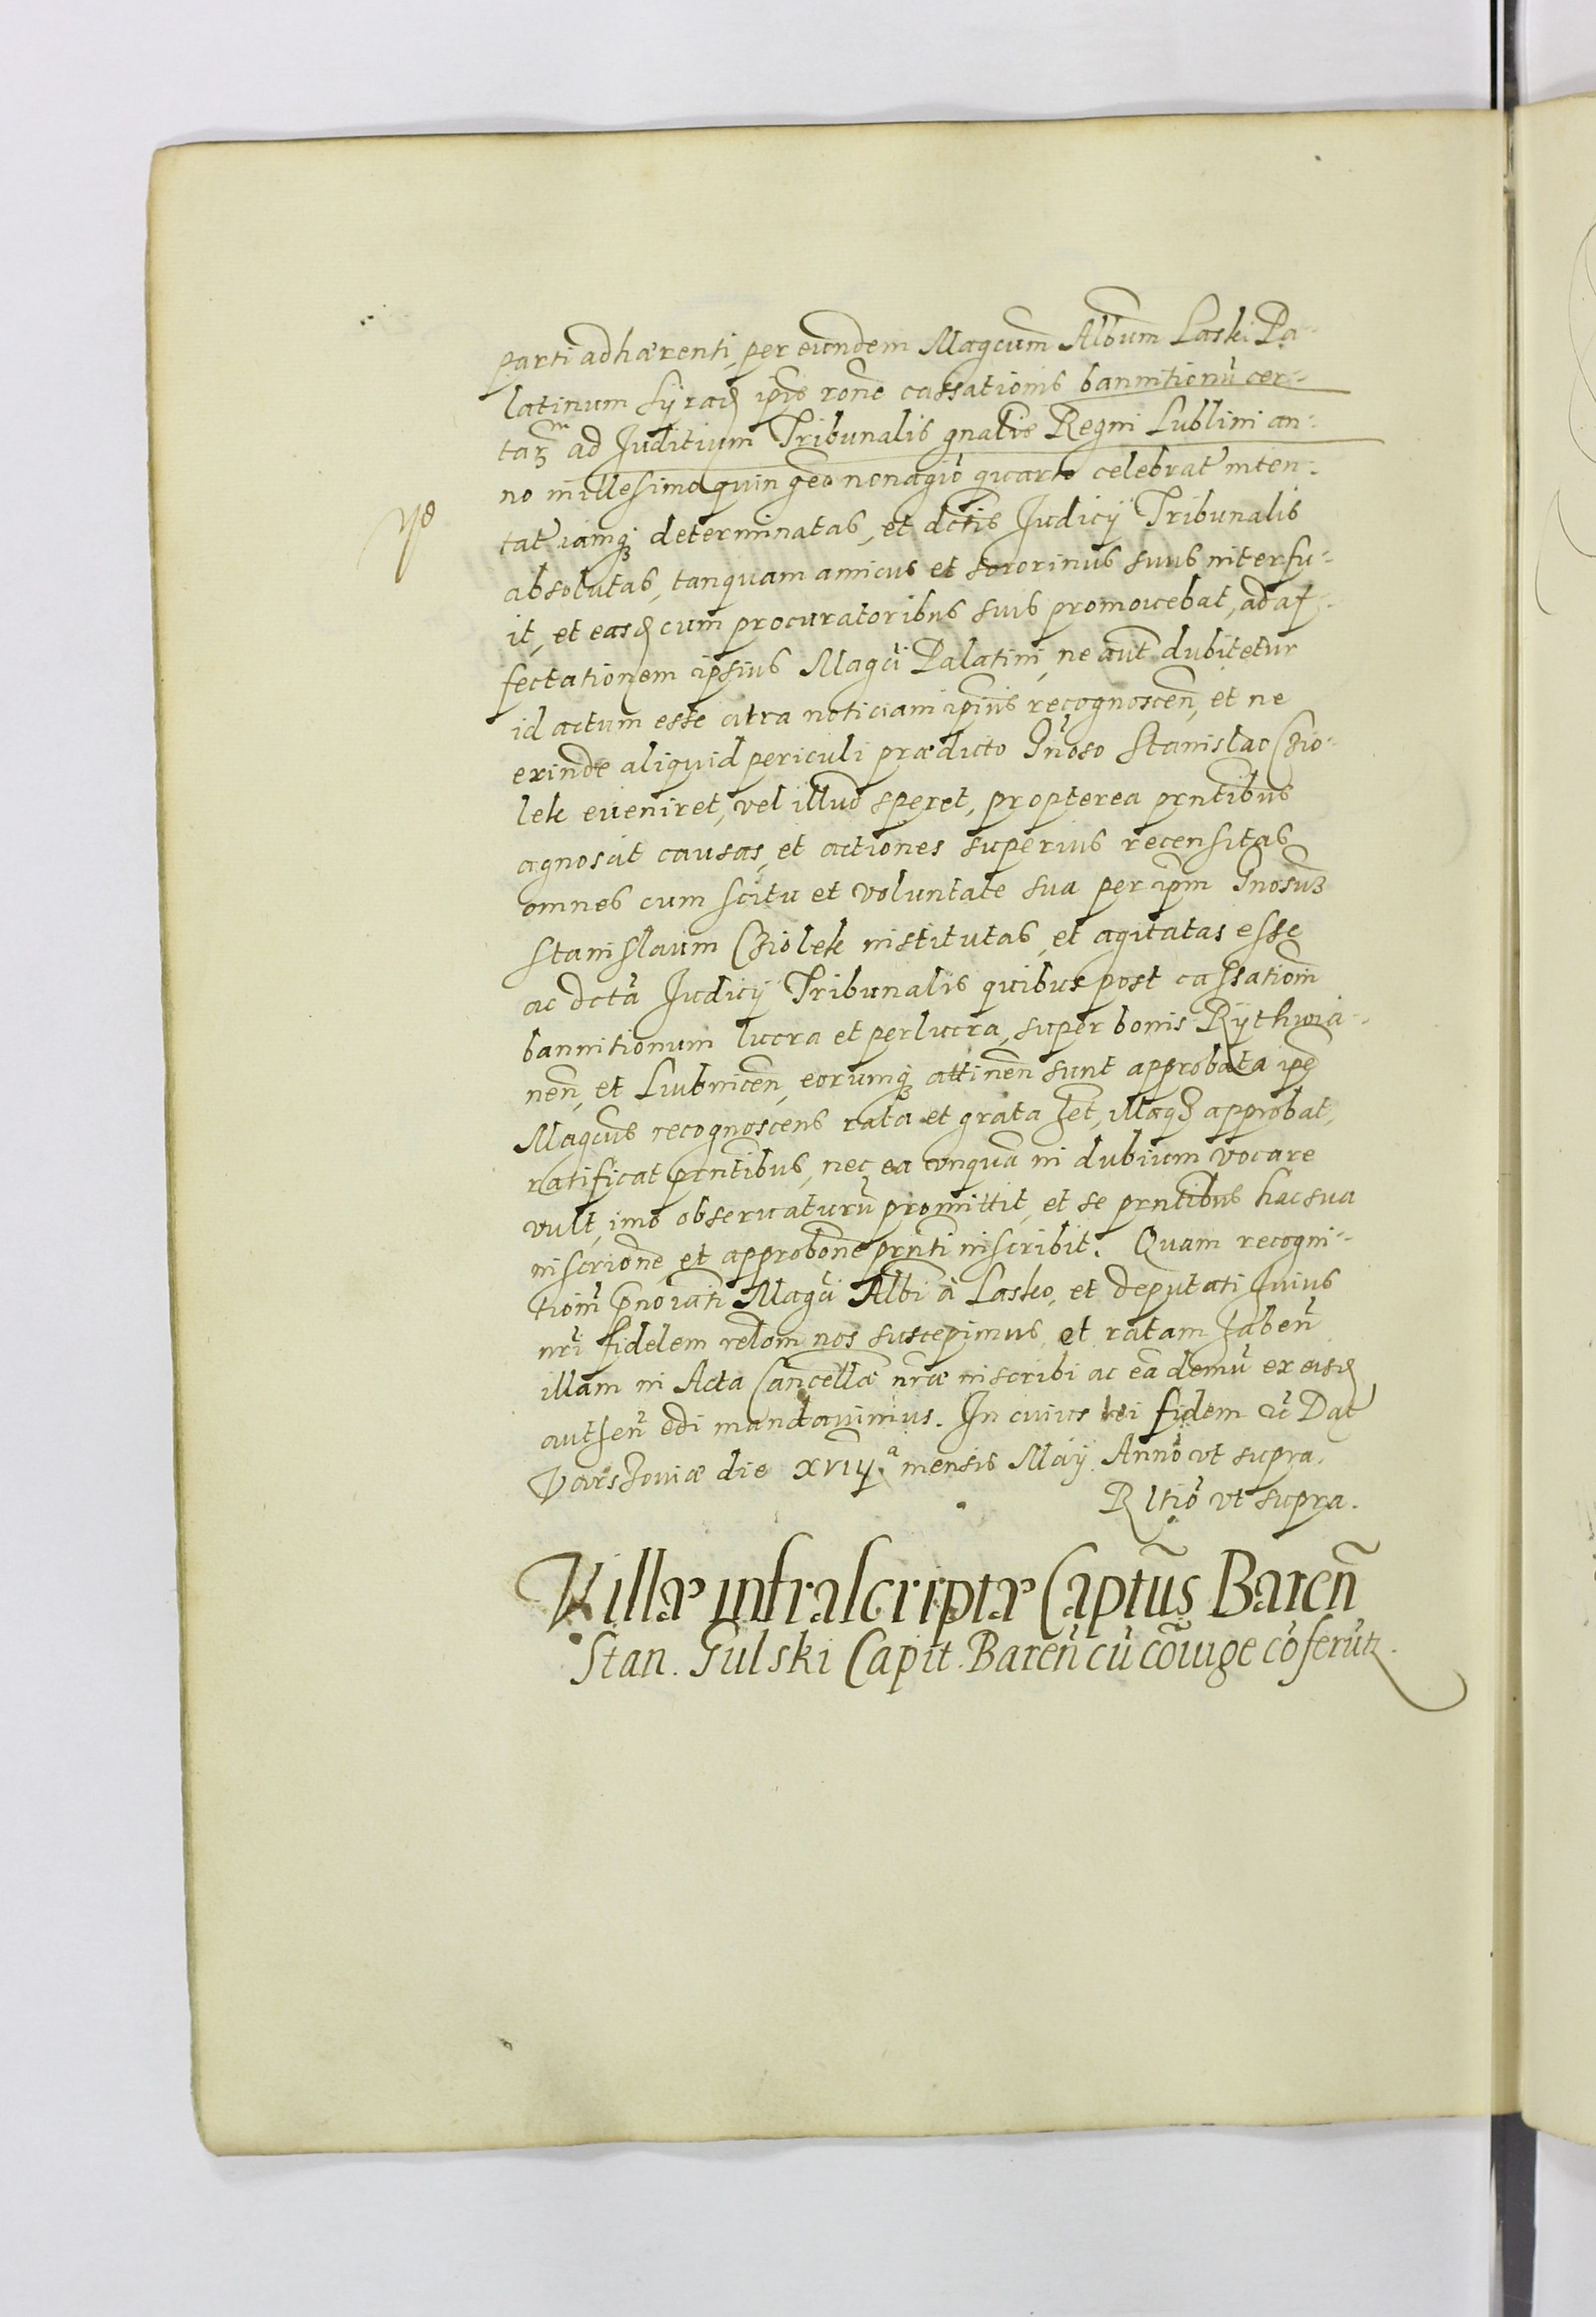 parti adhærenti, per eundem Magcum Album Laski Pa-
latinum Syraden ipse rone cassationis bannitionũ cer-
taꝝ ad Juditium Tribunalis gnalis Regni Lublini an-
no millesimo quingeo nonagiõ quarto celebrat inten-
tat iamqꝫ determinatas, et dctis Judicij Tribunalis
absolutas, tanquam amicus et sororinus suus interfu-
it, et easdem cum procuratoribus suis promovebat, ad af-
fectationem ipsius Magci Palatini, ne aut dubitetur
id actum esse citra noticiam ipsius recognoscen, et ne
exinde aliquid periculi prædicto Gnoso Stanislao Czio-
lek eveniret, vel illud speret, propterea prntibus
agnoscit causas, et actiones superius recensitas
omnes cum scitu et voluntate sua per ipm Gnosuʒ
Stanislaum Cziolek institutas, et agitatas esse
ac dctã Judicij Tribunalis quibus post cassationem
bannitionum lucra et perlucra, super bonis Rythwia-
nen, et Lubnicen, eorumqꝫ attinen sunt approbata ipe
Magcus recognoscens rata et grata het, illaqꝫ approbat,
ratificat prntibus, nec ea unquã in dubium vocare
vult, imo observaturũ promittit, et se prntibus hac sua
inscrione et approbone prnti inscribit. Quam recogni-
tiom prnoiati Magci Albi à Lasko, et deputati huius
nri fidelem relom nos suscepimus, et ratam haben
illam in Acta Cancellæ nræ inscribi ac eã demũ ex eisdem
authen edi mandavimus. In cuius rei fidem &c Dat
Varszoviæ die XVIIJ.ª mensis Maij Anno vt supra.
Rltiõ vt supra.
Villæ infrascriptæ Captũs Barẽn
Stan. Gulski Capit. Barẽn cũ cõiuge cõferũtr.